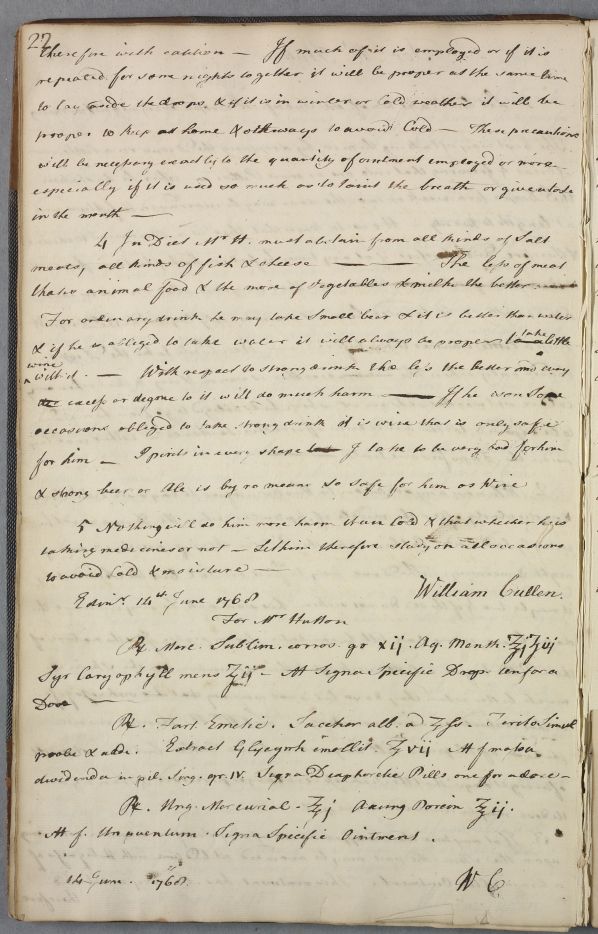 22
therefore with caution — If much of it is employed or if it is
repeated for some nights together it will be proper at the same time
to lay aside the drops, & if it is in winter or Cold weather it will be
proper to keep at home & otherways to avoid Cold — These precautions
will be necessary exactly to the quantity of ointment employed or more
especially if it is used so much as to taint the breath or give a
in the mouth —
4 In Diet Mr H. must abstain from all kinds of Salt
meats, all kinds of fish & cheese — The less of meat
that is animal food & the more of vegetables & milk the better
For ordinary drink he may take Small bear & it is better than water
& if he is obliged to take water it will always be proper to take a little
wine with it. — With respect to strong drink the less the better and every
excess or degree to it will do much harm — If he is on Some
occasions obliged to take strong drink it is wine that is only safe
for him — Spirits in every shape I take to be very bad for him
& strong beer or Ale is by no means so safe for him as Wine
5 Nothing will do him more harm than Cold & that whether he is
taking medicines or not — Let him therefore study on all occasions
to avoid Cold & moisture —
William Cullen.
Edinr. 14th June 1768
For Mr Hutton
℞ Merc. Sublim. corros. gr xij. Aq. Menth. ℥
Syr Caryophyll mens ℥ij — M Signa Specific Drop.
Dose —
℞. Tart Emetic. Sacchar alb. a ʒſs. Terito Simul
probe & adde. Extract Glycyrrh emollit. ʒvij M f massa
dividenda in pil. Sing. gr. IV. Signa Diaphoretic Pills one for a dose —
℞. Ung. Mercurial. ℥j Axung Porcin ℥ij.
M f. Unguentum. Signa Specific Ointment.
14 June. 1768.
W C